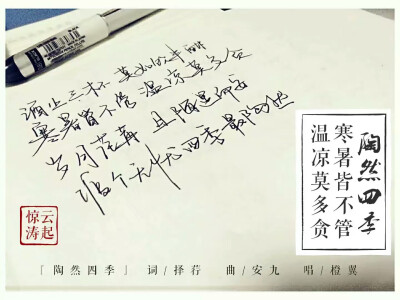 酒止三杯 莫如故事酣
寒暑皆不管 温凉莫多贪
岁月荏苒 且随遇而安
个无忧 四季最陶然
陶然四季
寒暑皆不管
温凉莫多贪
云起
惊涛
「陶然四季」 词/择荇 曲/安九 唱/橙翼